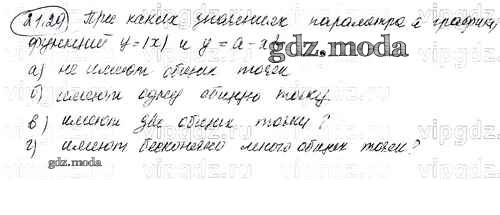 21.20) При каких значениях параметра а графики
функций y=|x| и y = a - x²
gdz.moda
а) не имеют общих точек
б) имеют одну общую точку
в) имеют две общих точки?
г) имеют бесконечно много общих точек?
gdz.moda
vipgdz